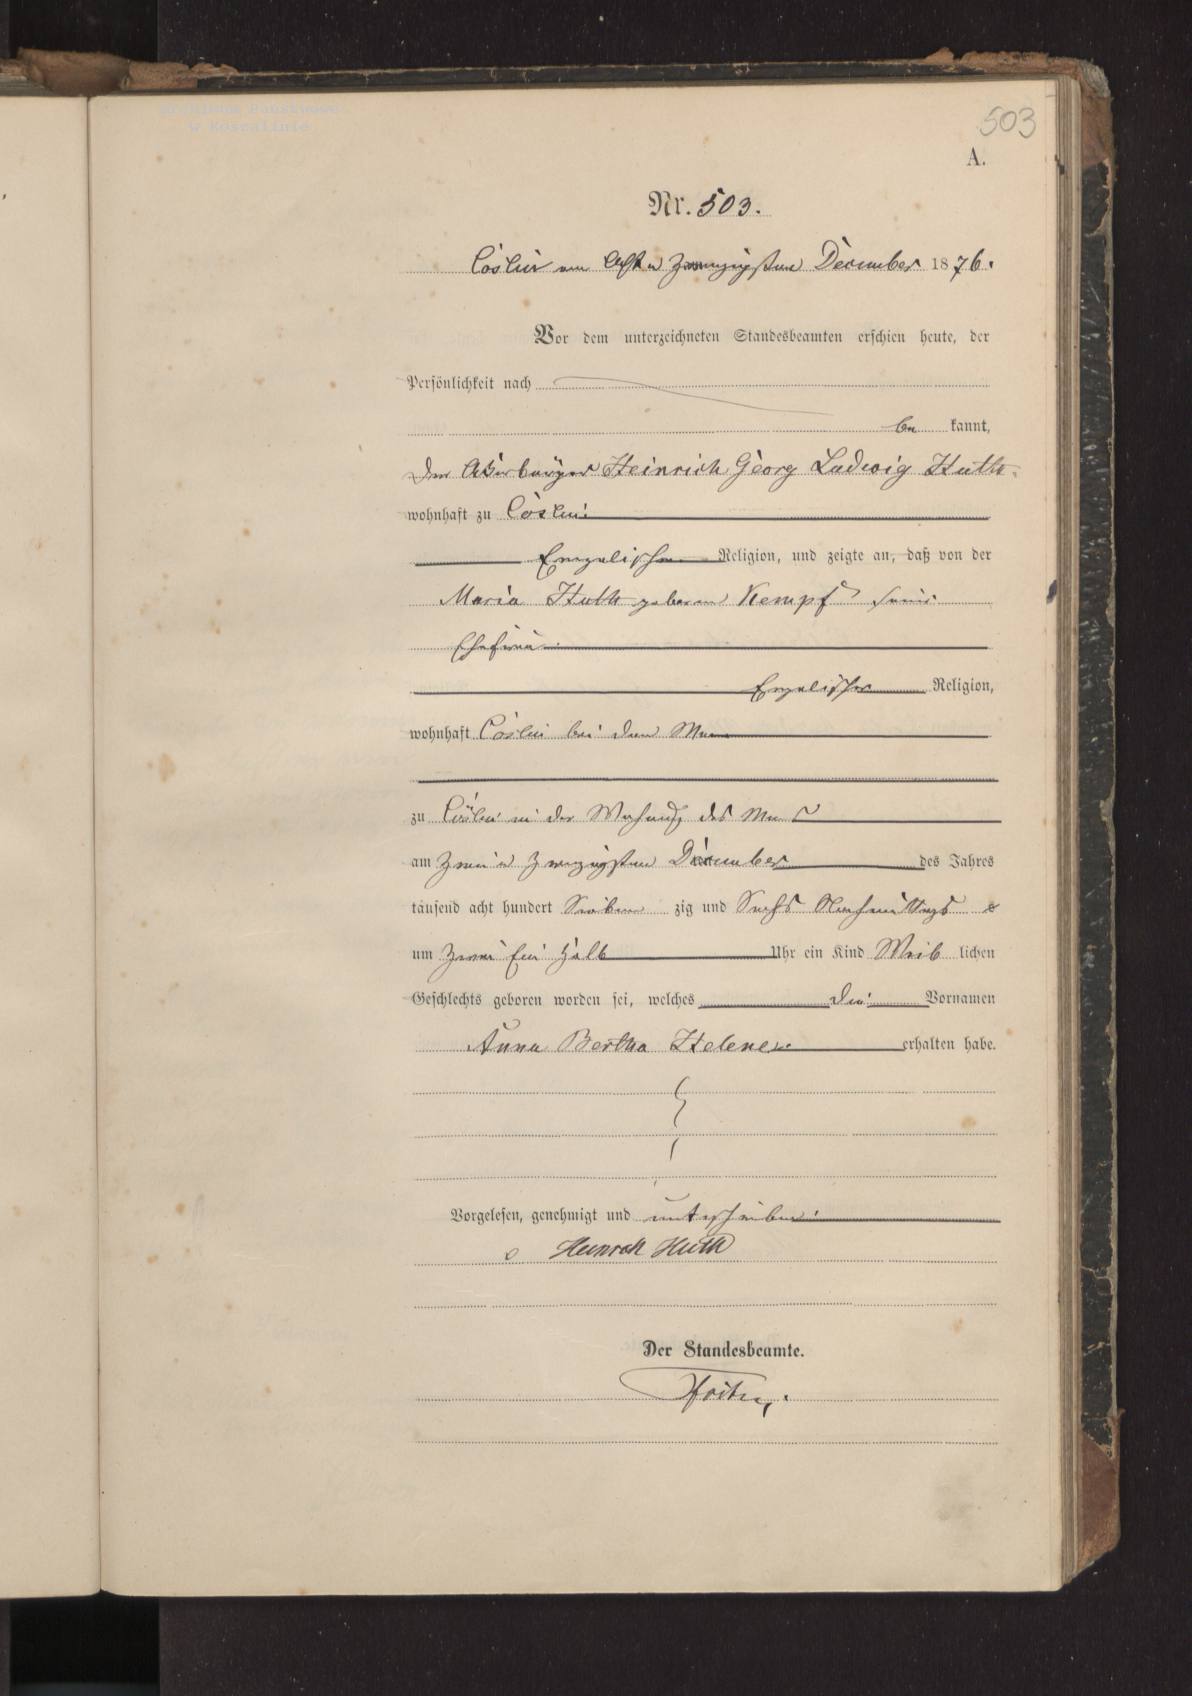 Archiwum Państwowe
w Koszalinie
503
A.
Nr. 503.
Cöslin am acht u zwanzigsten December 1876.
Vor dem unterzeichneten Standesbeamten erschien heute, der
Persönlichkeit nach
be kannt,
der Ackerbürger Heinrich Georg Ludwig Huth
wohnhaft zu Cöslin
Religion, und zeigte an, daß von der
Maria Huth geborene Kempf seiner
Ehefrau
Religion,
wohnhaft Cöslin bei dem
zu Cöslin in der Wohnung des
am zwei u zwanzigsten December des Jahres
tausend acht hundert Sieben zig und Sechs Nachmittags
um zwei ein halb Uhr ein Kind Weib lichen
Geschlechts geboren worden sei, welches die Vornamen
Anna Bertha Helene erhalten habe.
Vorgelesen, genehmigt und unterschrieben
Heinrich Huth
Der Standesbeamte.